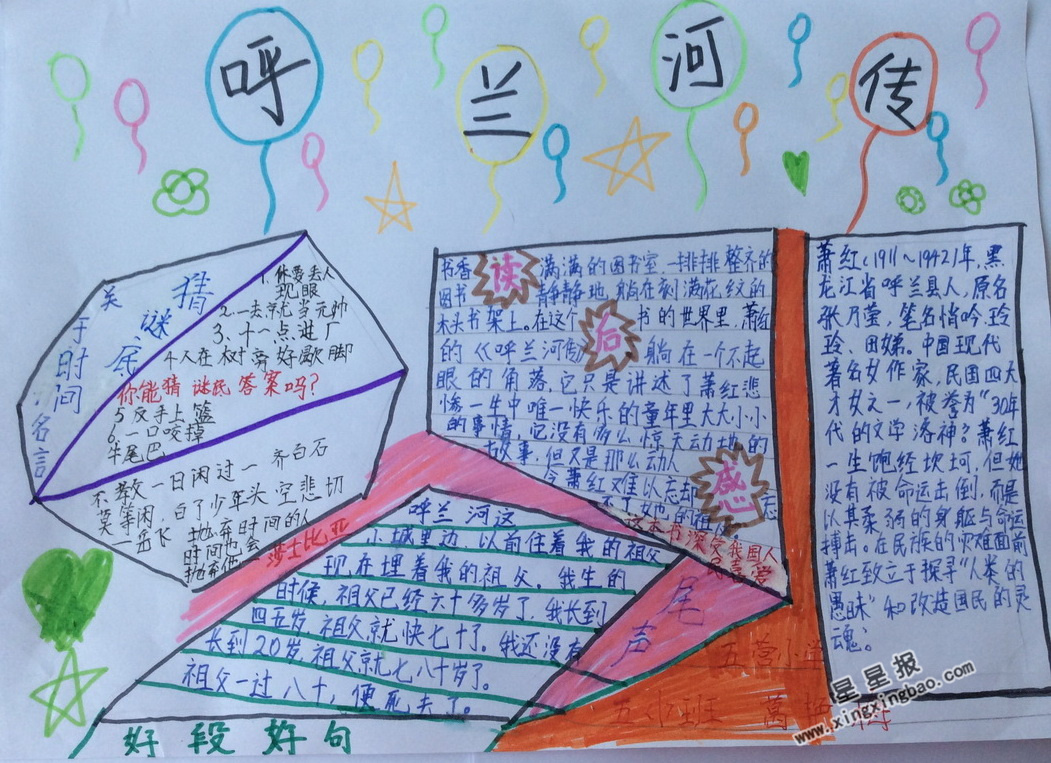 呼兰河传
关于时间
名言
猜谜底
1.休要丢人
现眼
2.一去就当元帅
3.十一点进厂
4.人在树旁好歇脚
你能猜谜底答案吗?
5反手上篮
6.一口咬掉
牛尾巴
不教一日闲过一齐白石
莫等闲 白了少年头空悲切
一岳飞
抛弃时间的人
时间也会
抛弃他一
莎士比亚
读后感
书香满满的图书室,一排排整齐的
图书静静地躺在刻满花纹的
木头书架上。在这个书的世界里,萧红
的《呼兰河传》躺在一个不起
眼的角落,它只是讲述了萧红悲
惨一生中唯一快乐的童年里大大小小
的事情,它没有多么惊天动地的
故事,但又是那么动人
令萧红难以忘却
忘
不了她的祖父
这本书深受我国人
民喜爱
萧红(1911~1942)年,黑
龙江省呼兰县人,原名
张乃莹,笔名悄吟、玲
玲、田娣。中国现代
著名女作家,民国四大
才女之一,被誉为“30年
代的文学洛神”?萧红
一生饱经坎坷,但她
没有被命运击倒,而是
以其柔弱的身躯与命运
搏击。在民族的灾难面前
萧红致立于探寻“人类的
愚昧”和改造国民的灵
魂。
尾声
呼兰河这
小城里边以前住着我的祖父
现在埋着我的祖父。我生的
时候祖父已经六十多岁了,我长到
四五岁,祖父就快七十了。我还没有
长到20岁,祖父就七八十岁了。
祖父一过八十,便死去了。
好段好句
五营小学
星星报
www.xingxingbao.com